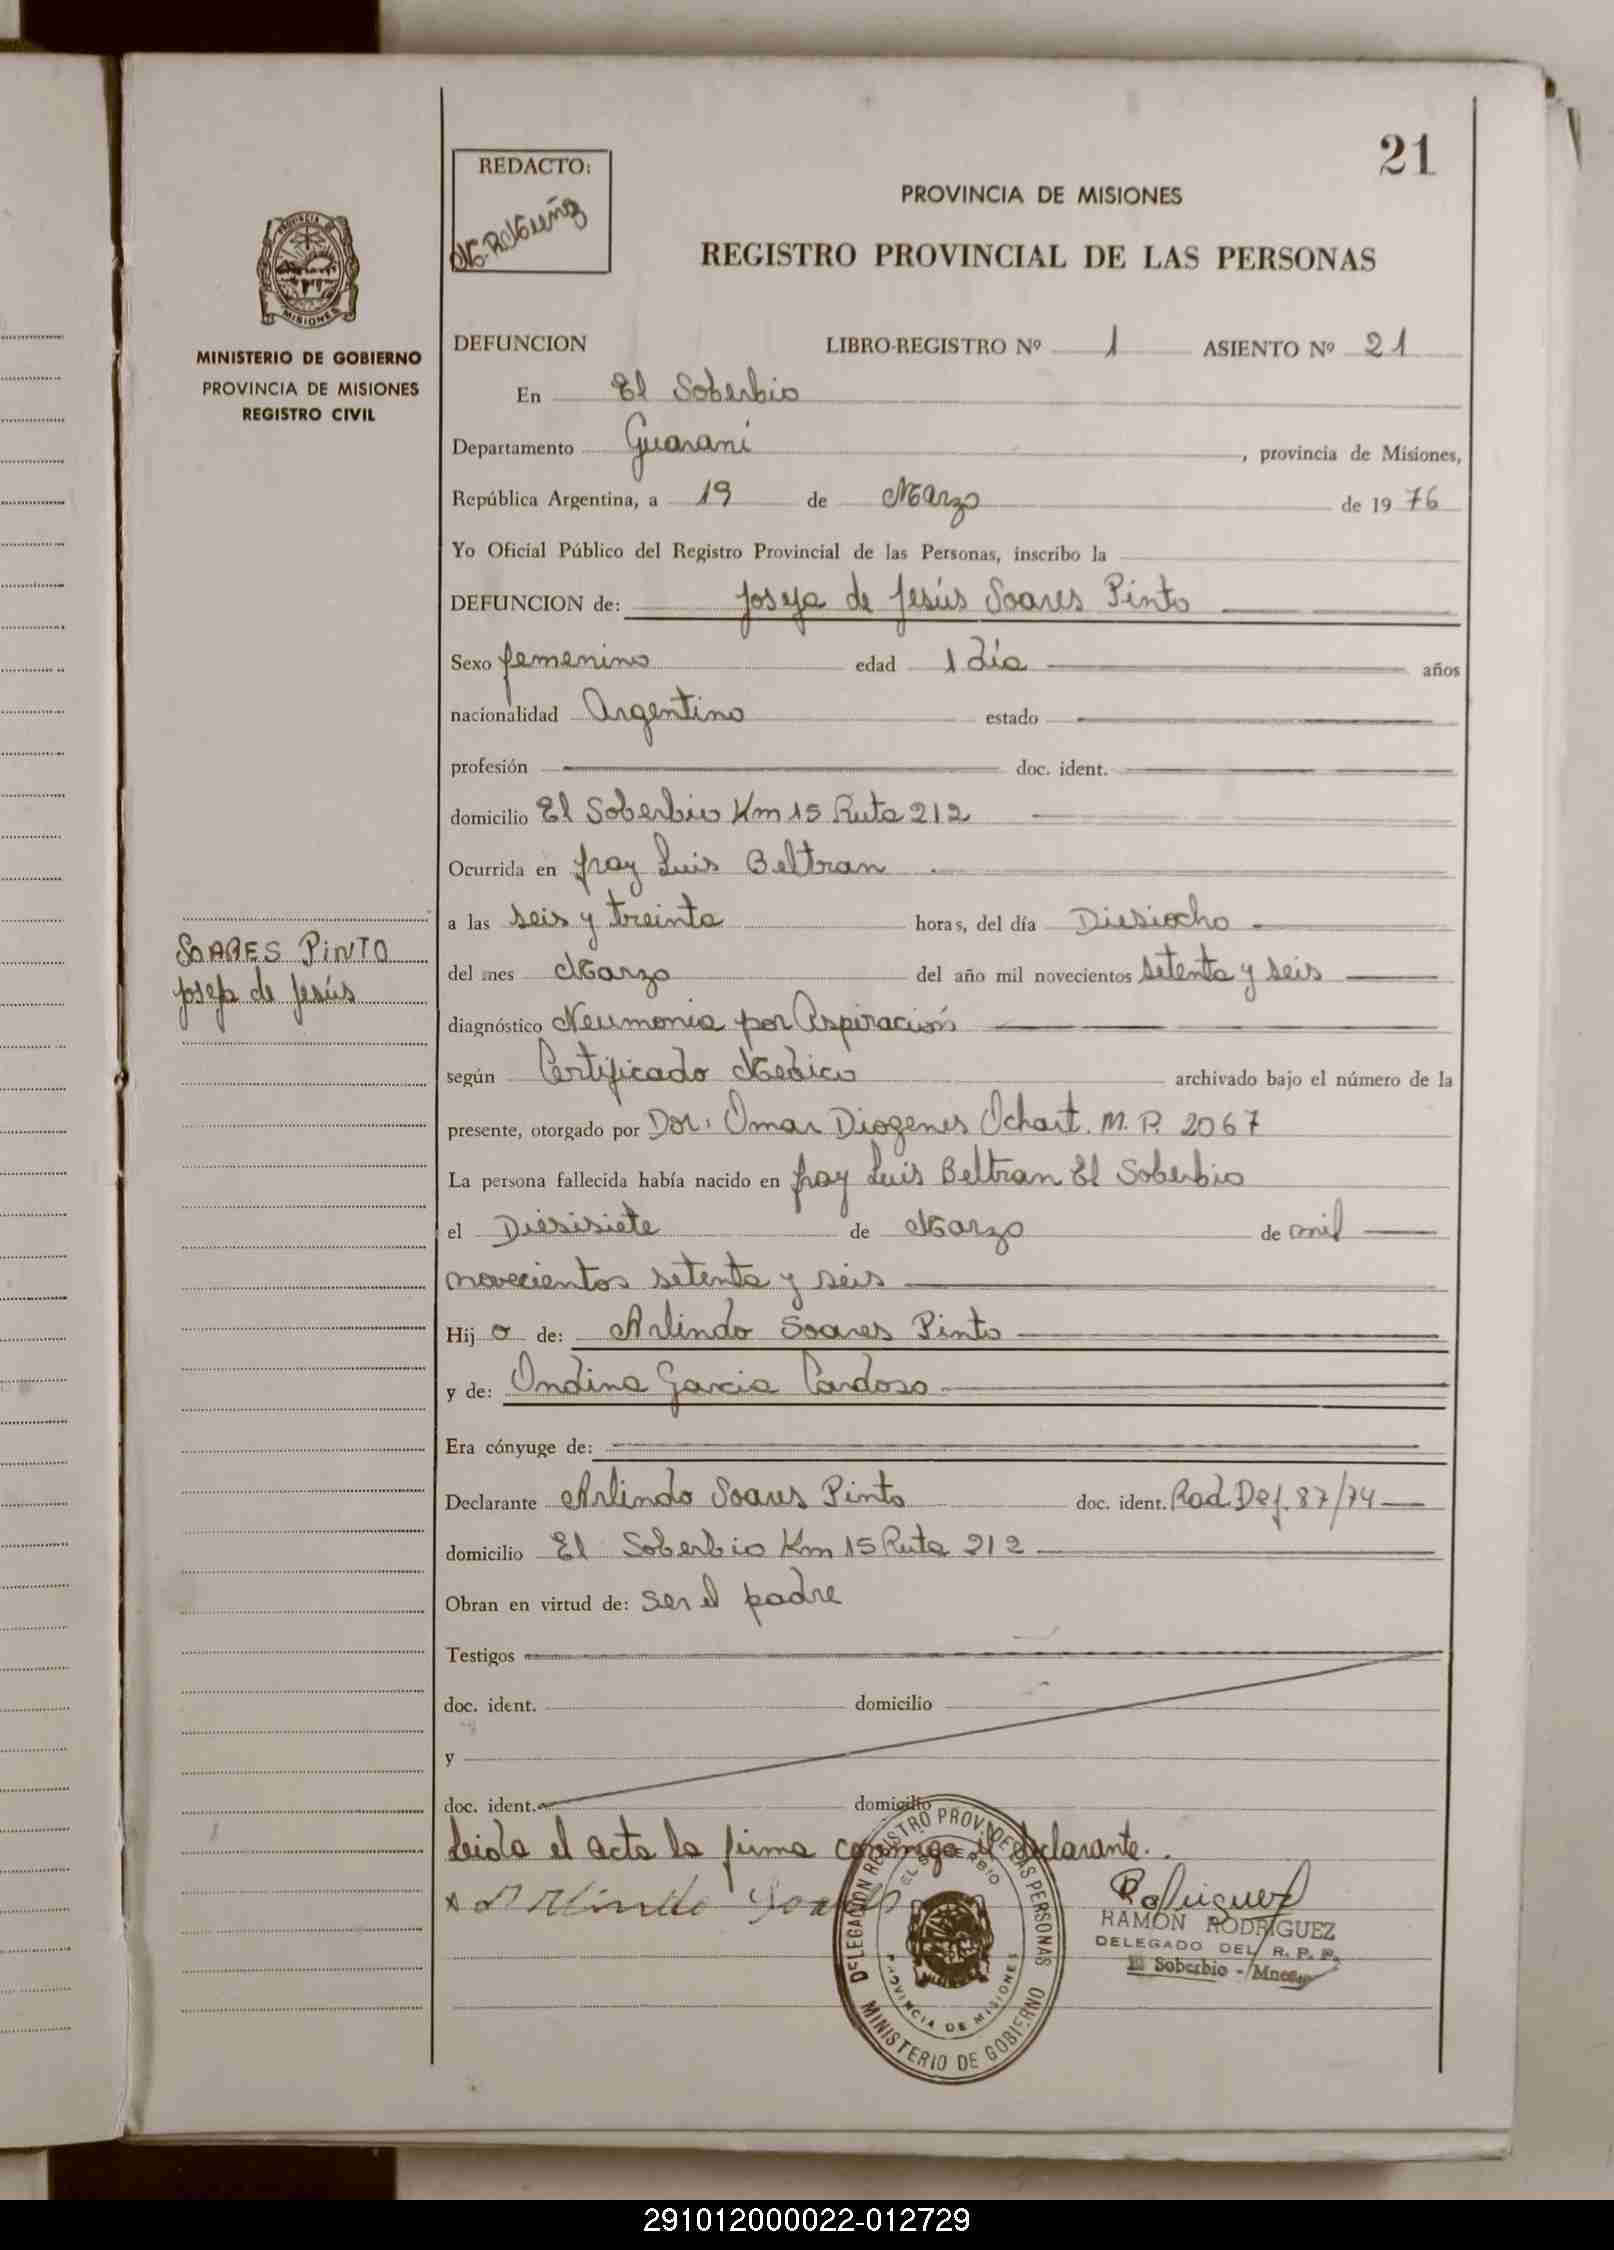 21
REDACTO:
PROVINCIA DE MISIONES
REGISTRO PROVINCIAL DE LAS PERSONAS
PROVINCIA DE
MISIONES
MINISTERIO DE GOBIERNO
PROVINCIA DE MISIONES
REGISTRO CIVIL
DEFUNCION LIBRO-REGISTRO Nº 1 ASIENTO Nº 21
En El Soberbio
Departamento Guaraní, provincia de Misiones,
República Argentina, a 19 de Marzo de 1976
Yo Oficial Público del Registro Provincial de las Personas, inscribo la
DEFUNCION de: Josefa de Jesús Soares Pinto
Sexo femenino edad 1 día años
nacionalidad Argentino estado
profesión doc. ident.
domicilio El Soberbio Km 15 Ruta 212
Ocurrida en fray Luis Beltran
a las seis y treinta horas, del día Diesiocho
SOARES PINTO
Josefa de Jesús
del mes Marzo del año mil novecientos setenta y seis
diagnóstico Neumonia por Aspiración
según Certificado Medico archivado bajo el número de la
presente, otorgado por Dor. Omar Diogenes Ochart. M. P. 2067
La persona fallecida había nacido en fray Luis Beltran El Soberbio
el Diesisiete de Marzo de mil
novecientos setenta y seis
Hijo de: Arlindo Soares Pinto
y de: Ondina Garcia Cardoso
Era cónyuge de:
Declarante Arlindo Soares Pinto doc. ident. Rad. Def. 87/74
domicilio El Soberbio Km 15 Ruta 212
Obran en virtud de: ser el padre
Testigos
doc. ident. domicilio
y
doc. ident. domicilio
Leida el acta la firma conmigo el declarante.
Arlindo Soares
Rodriguez
RAMON RODRIGUEZ
DELEGADO DEL R. P. P.
El Soberbio - Mnes
DELEGACION REGISTRO PROV. DE LAS PERSONAS
EL SOBERBIO
PROVINCIA DE MISIONES
MINISTERIO DE GOBIERNO
291012000022-012729